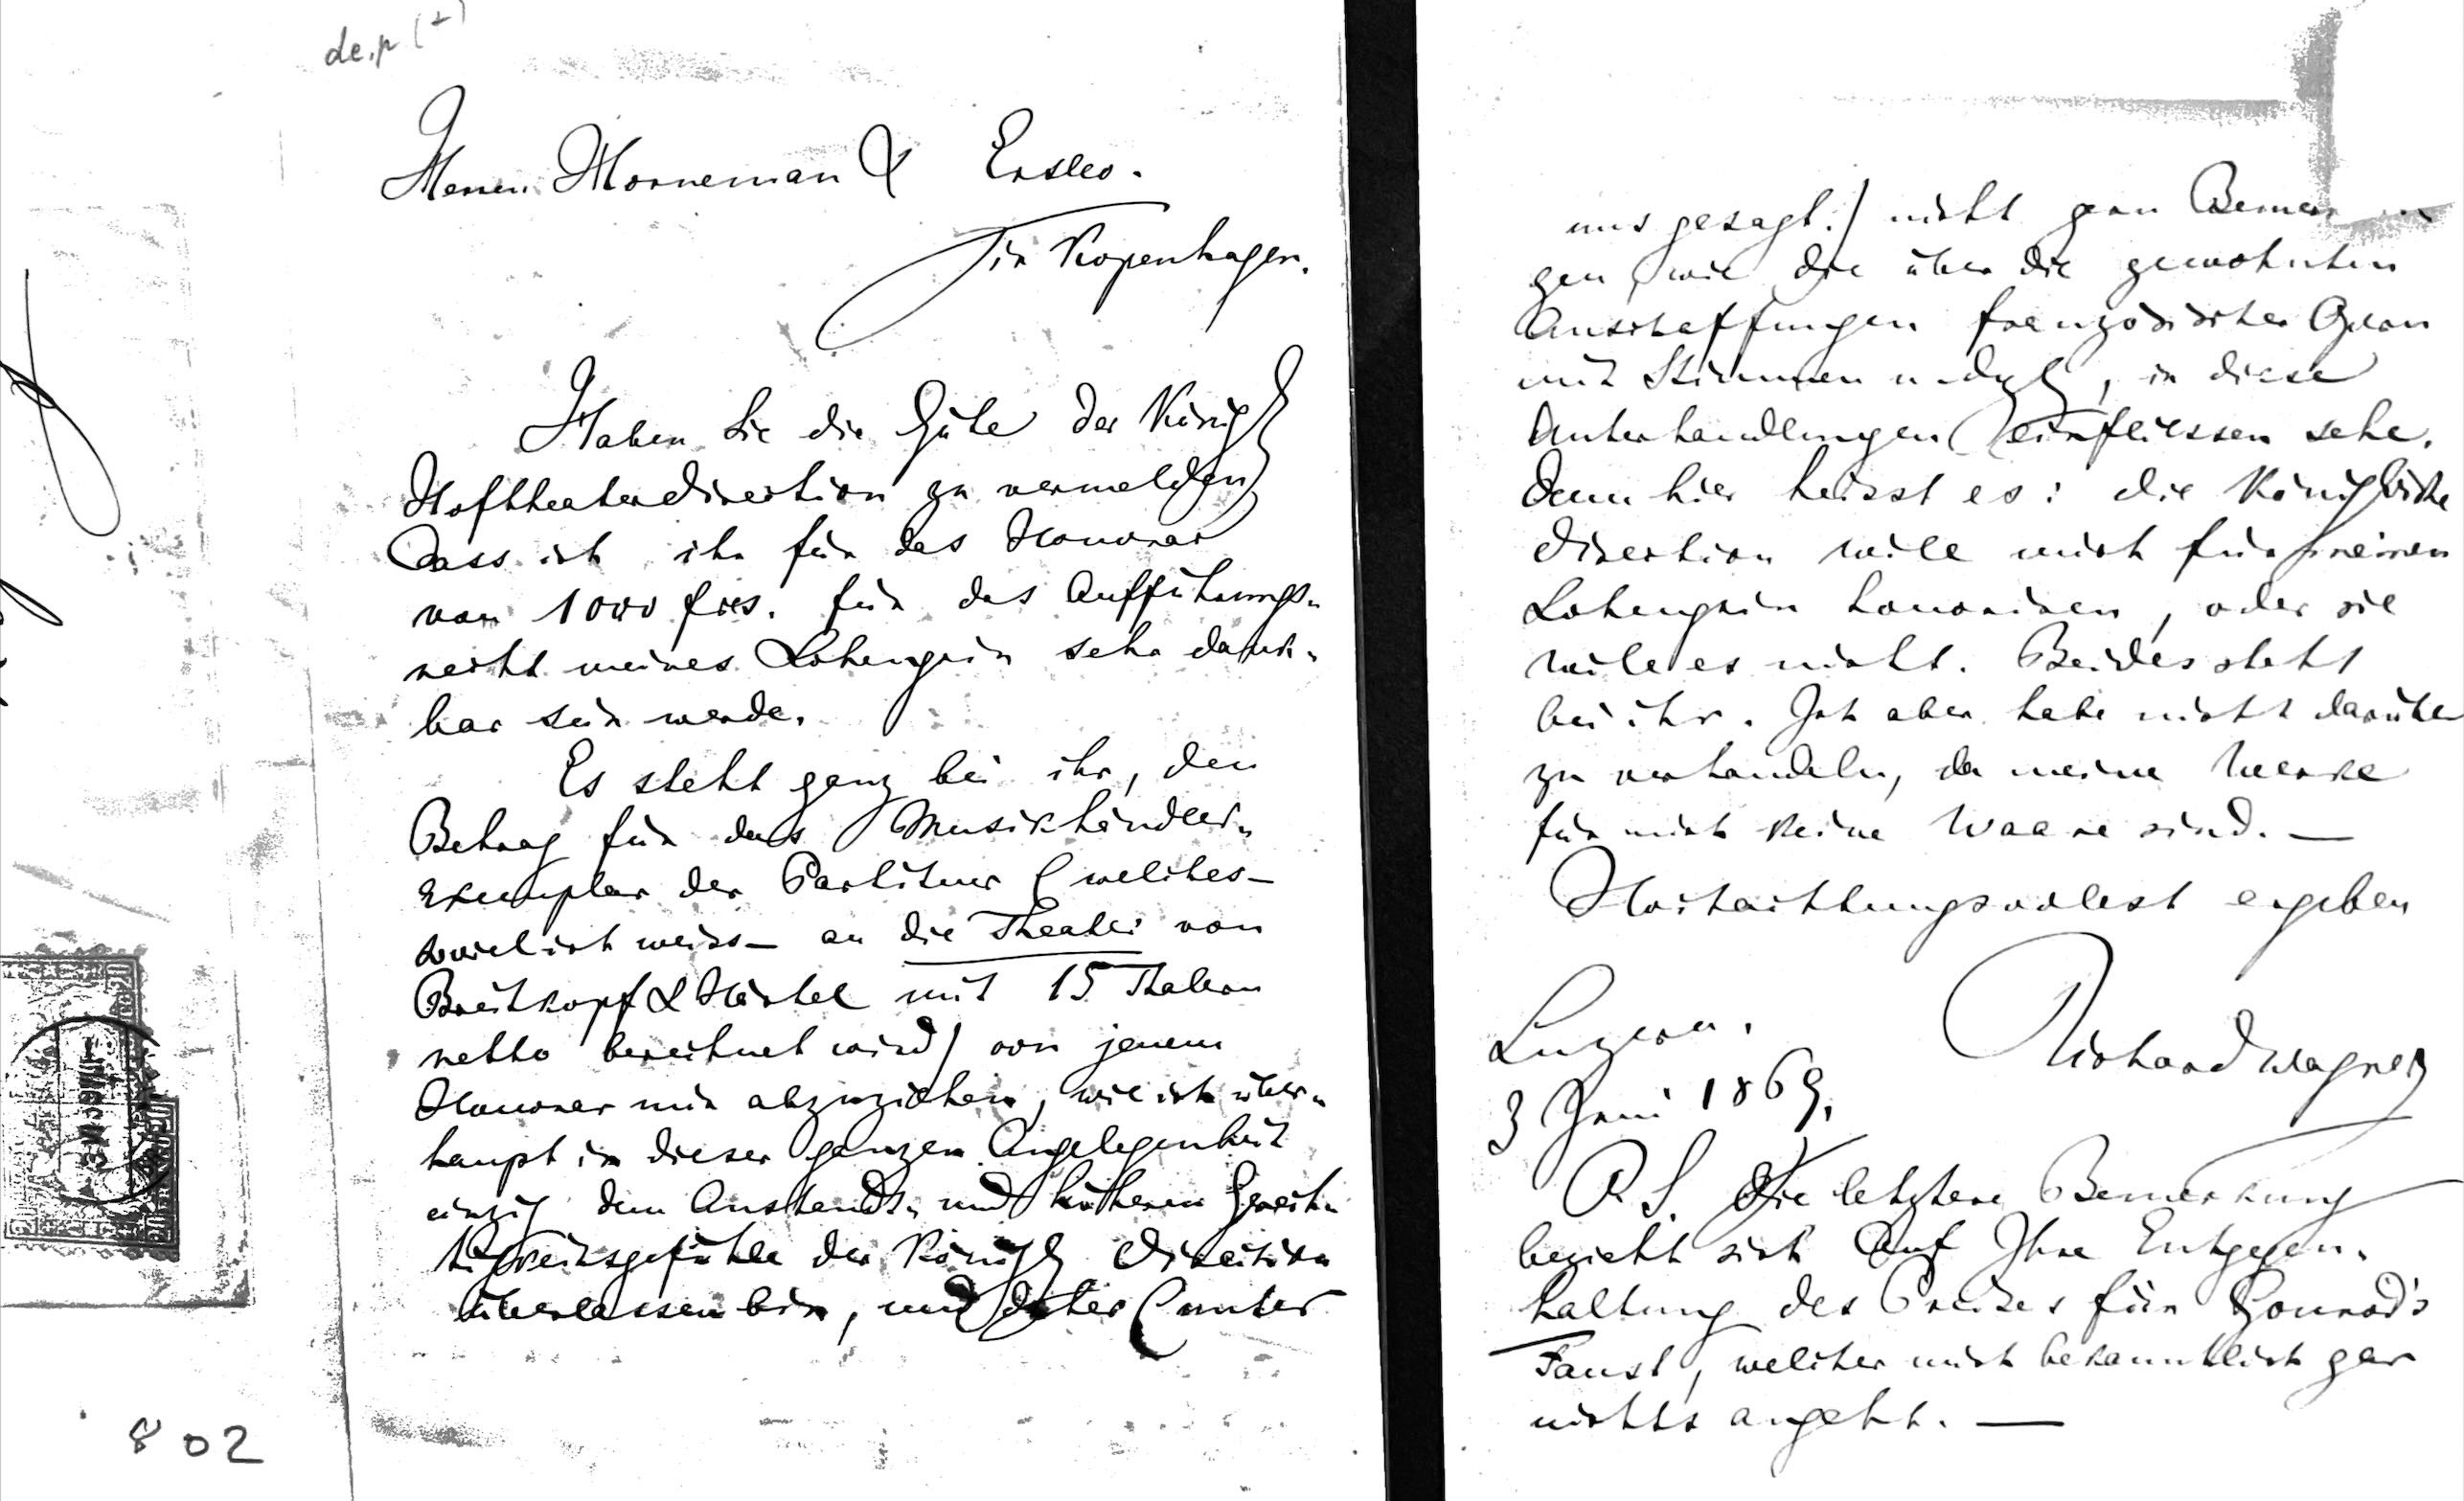 de.p (+)
Herren Horneman & Erslev.
in Kopenhagen.
Haben Sie die Güte der Königl
Hoftheaterdirection zu vermelden
dass ich ihr für das Honorar
von 1000 frcs. für das Aufführungs-
recht meines Lohengrin sehr dank-
bar sein werde.
Es steht ganz bei ihr, den
Betrag für das Musikhändler-
exemplar der Partitur (welches –
soviel ich weiss – an die Theater von
Breitkopf & Härtel mit 15 Thalern
netto berechnet wird) von jenem
Honorar mir abzuziehen, wie ich über-
haupt in dieser ganzen Angelegenheit
einzig dem Anstands- und höheren Gerech-
tigkeitsgefühle der Königl Direction
überlassen bin, und daher (unter
802
uns gesagt!) nicht gern Bemerkun
gen, wie die über die gewohnten
Anschaffungen französischer Opern
mit Stimmen u. dgl, in diese
Unterhandlungen einfliessen sehe.
Denn hier heisst es: die Königliche
Direction will mich für meinen
Lohengrin honoriren, oder sie
will es nicht. Beides steht
bei ihr. Ich aber habe nicht darüber
zu verhandeln, da meine Werke
für mich keine Waare sind. –
Hochachtungsvollst ergeben
Luzern. Richard Wagner
3 Juni 1869.
P.S. Die letztere Bemerkung
bezieht sich auf Ihre Entgegen-
haltung des Preises für Gounod's
Faust, welcher mich bekanntlich gar
nichts angeht. —